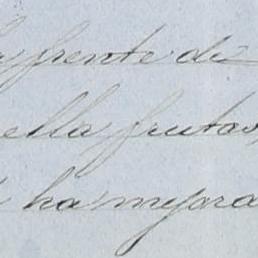 frente de
ella frutas
ha mejora